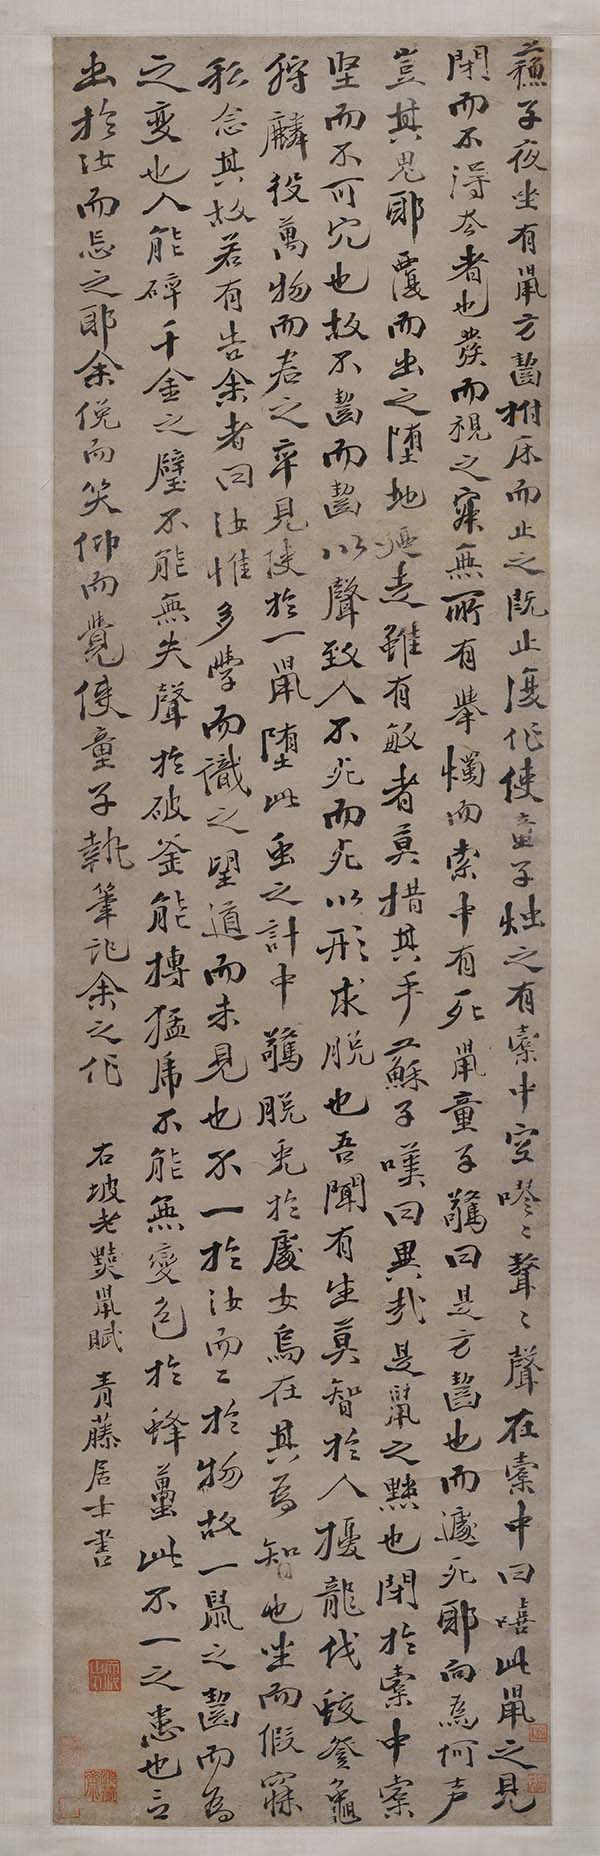 蘇子夜坐有鼠方齧拊床而止之既止復作使童子燭之有橐中空嘐〻聱〻聲在橐中曰嘻此鼠之見
閉而不得去者也發而視之寂無所有舉燭而索中有死鼠童子驚曰是方齧也而遽死耶向為何声
豈其鬼耶覆而出之墮地廼走雖有敏者莫措其手蘇子嘆曰異哉是鼠之黠也閉於橐中橐
堅而不可穴也故不齧而齧以聲致人不死而死以形求脫也吾聞有生莫智於人擾龍伐蛟登龜
狩麟役萬物而君之卒見使於一鼠墮此虫之計中驚脫兎於處女烏在其為智也坐而假寐
私念其故若有告余者曰汝惟多學而識之望道而未見也不一於汝而二於物故一鼠之齧而為
之变也人能碎千金之璧不能無失聲於破釜能搏猛虎不能無變色於蜂蠆此不一之患也言
出於汝而忘之耶余俛而笑仰而覺使童子執筆記余之作
右坡老黠鼠賦 青藤居士書